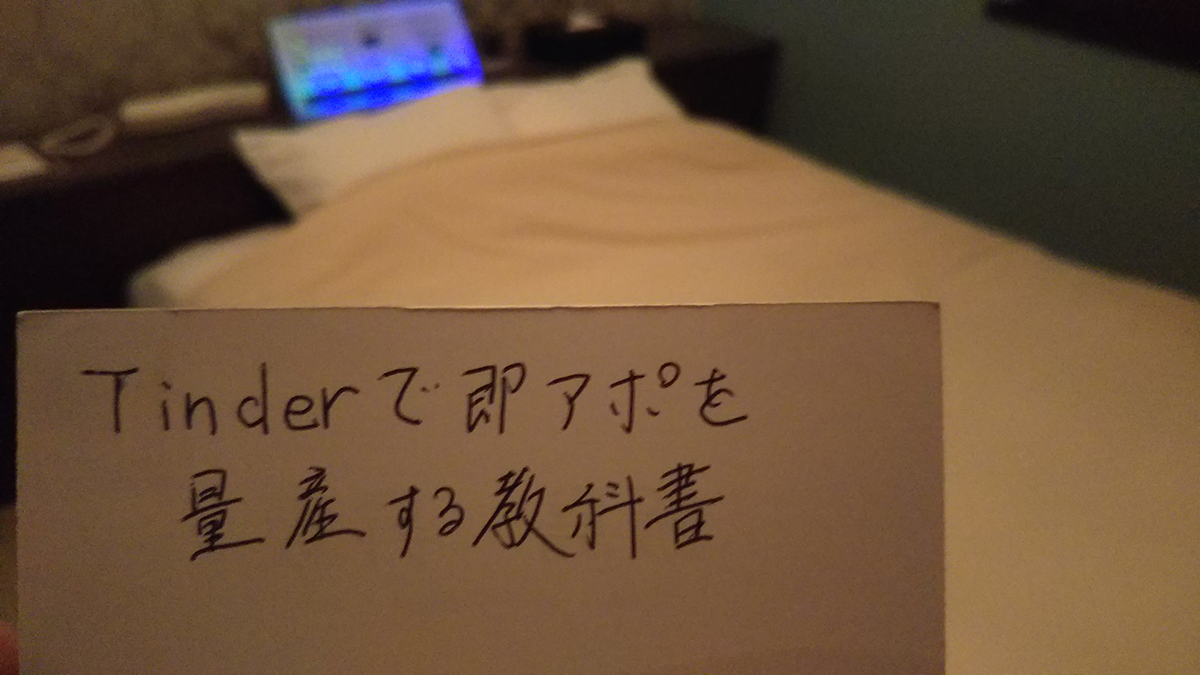 Tinderで即アポを
量産する教科書